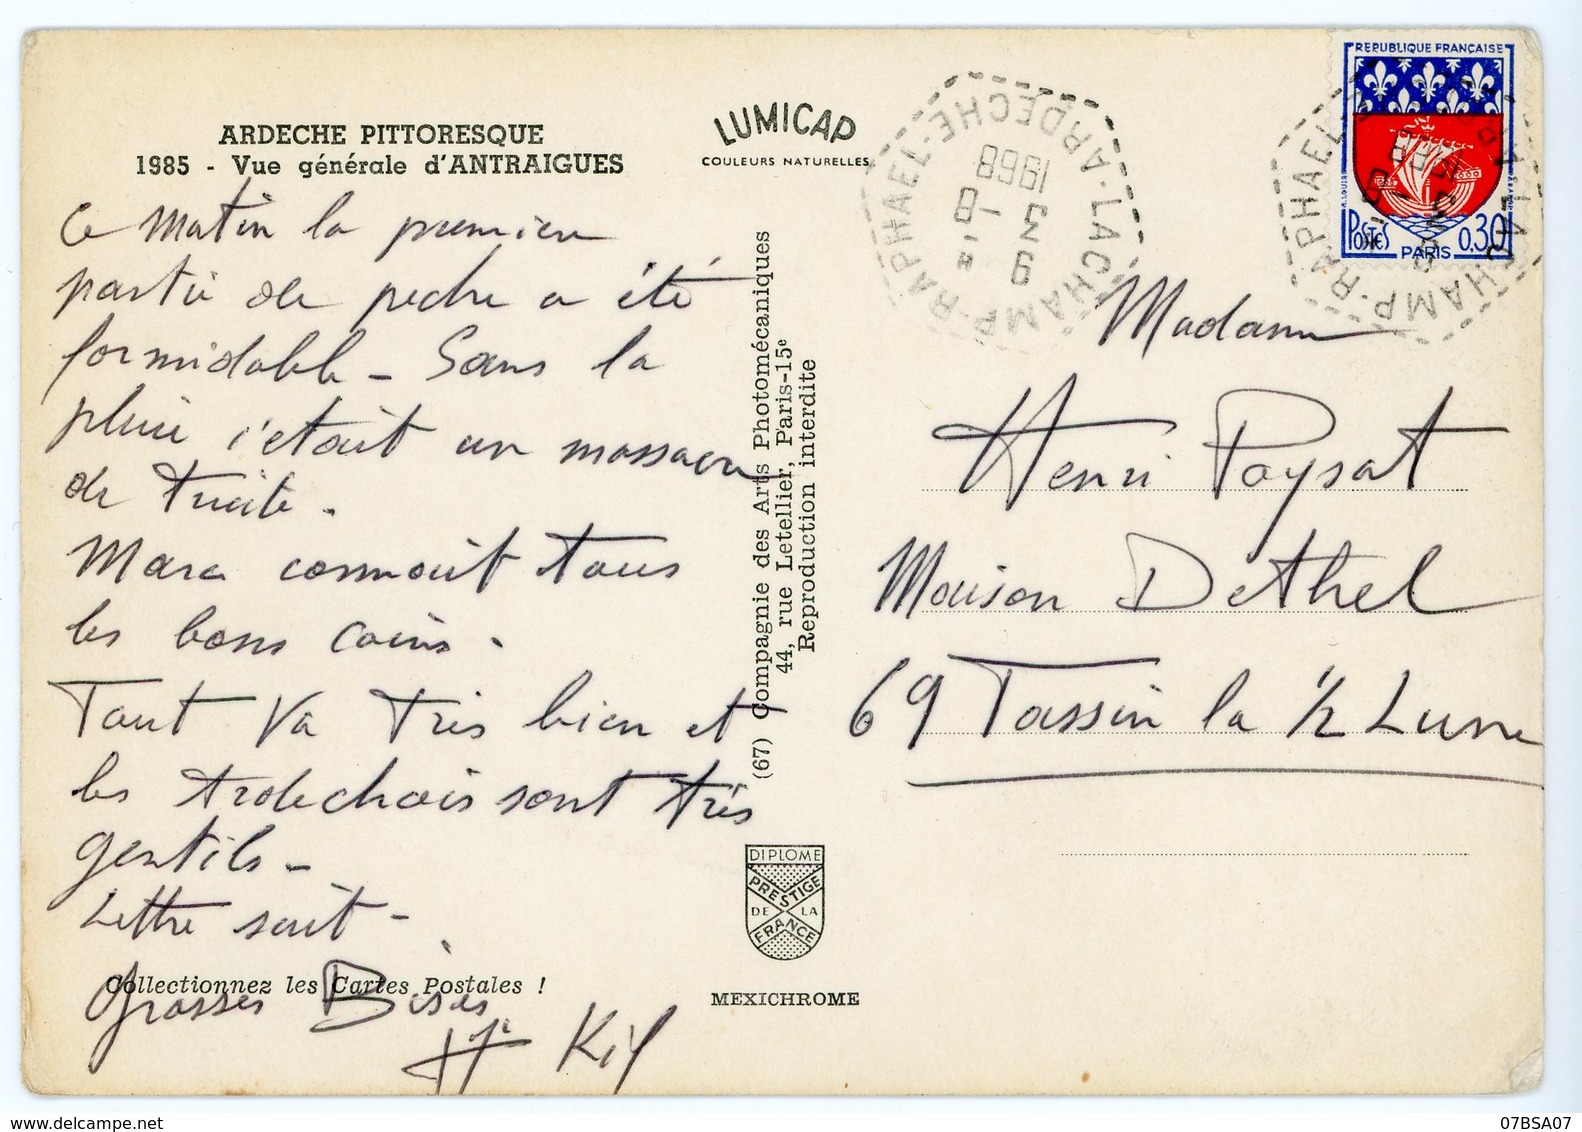 ARDECHE PITTORESQUE
1985 - Vue générale d'ANTRAIGUES
LUMICAP
COULEURS NATURELLES
Ce matin la première
partie de peche a été
formidable - Sans la
pluie c'etait un massacre
de truite.
Marc connait tous
les bons coins.
Tout va très bien et
les Ardechois sont très
gentils -
Lettre suit -
Grosses Bises
Collectionnez les Cartes Postales !
(67) Compagnie des Arts Photomécaniques
44, rue Letellier, Paris-15e
Reproduction interdite
DIPLOME
PRESTIGE
DE LA
FRANCE
MEXICHROME
LACHAMP-RAPHAEL-ARDECHE
1968
REPUBLIQUE FRANÇAISE
POSTES
PARIS
0,30
Madame
Henri Paysat
Maison Dethel
69 Tassin la 1/2 Lune
07BSA07